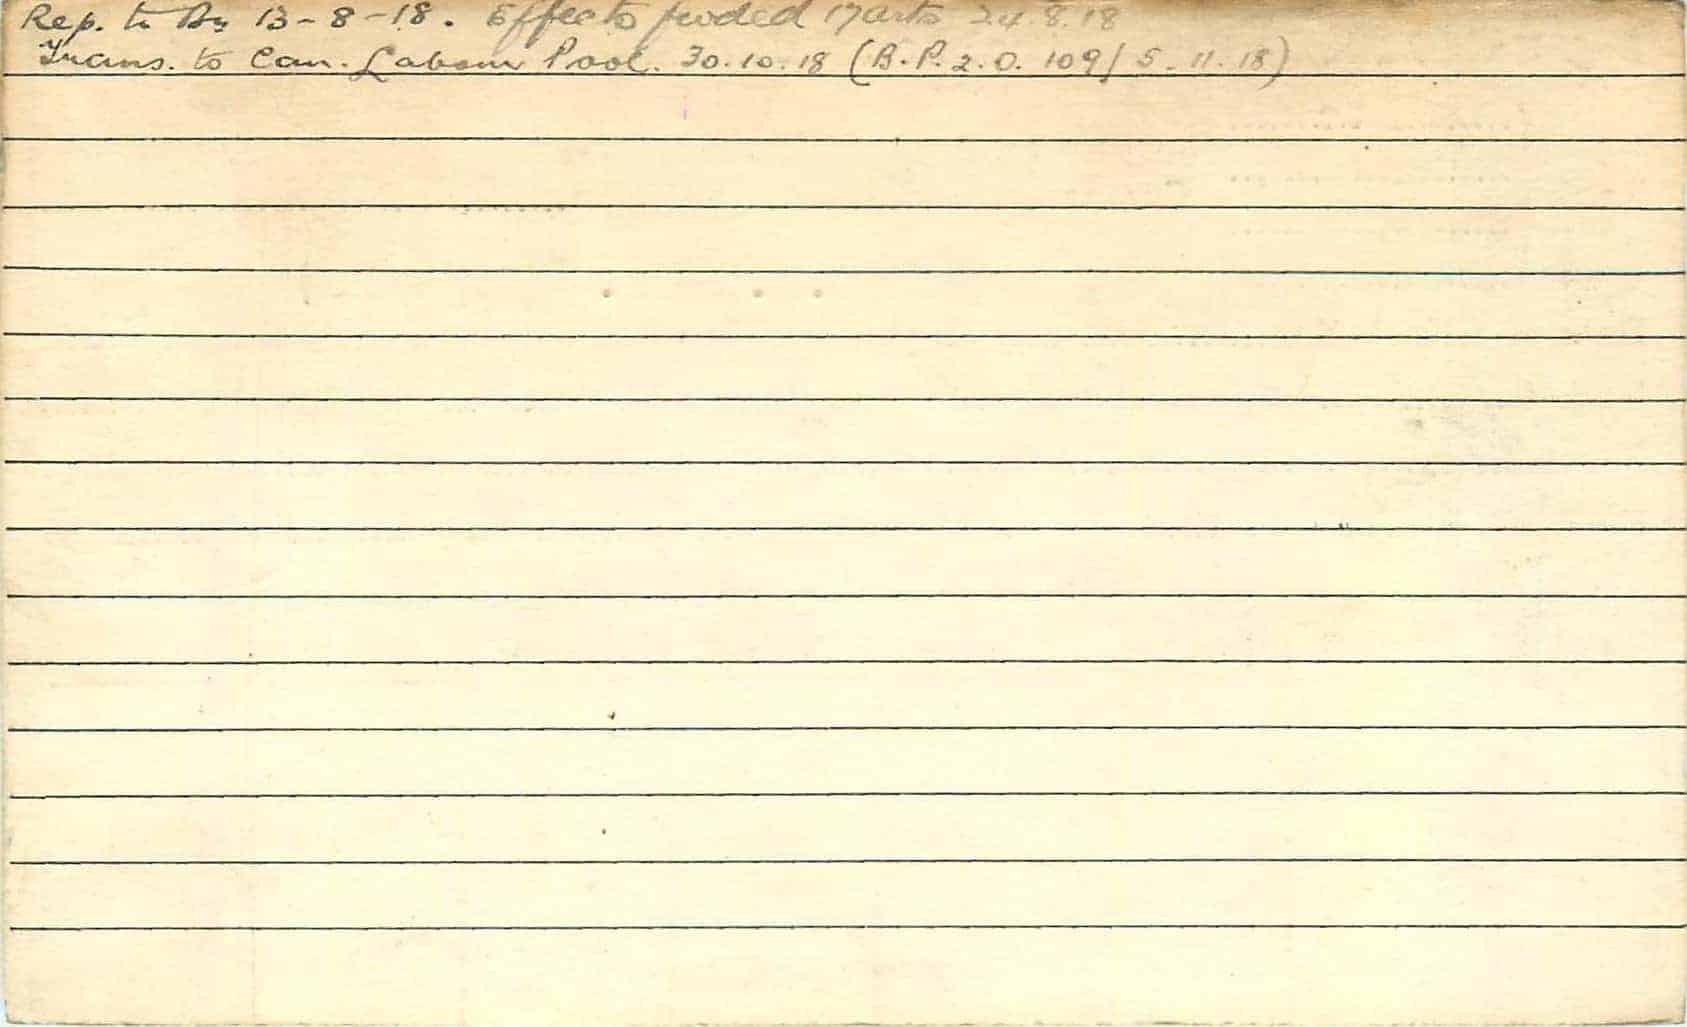 Rep. to Bn 13-8-18. Effects fwded 17 arts 24.8.18
Trans. to Can. Labour Pool. 30.10.18 (B.P.2.O. 109/5.11.18)